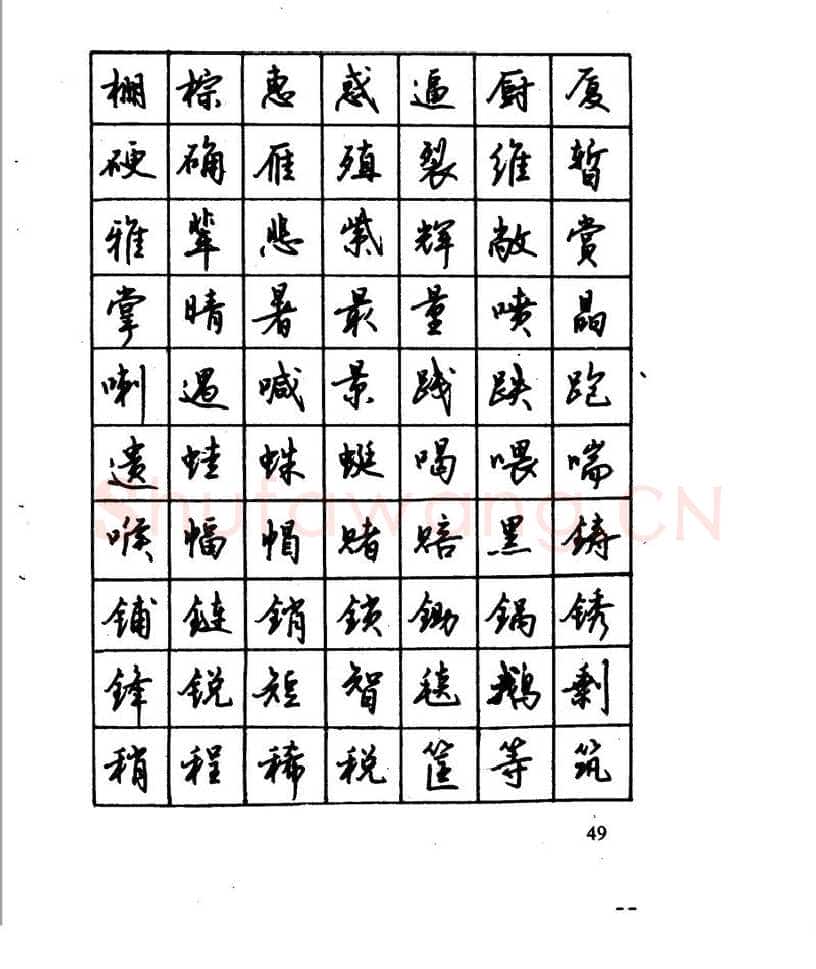 棚 棕 惠 惑 逼 厨 厦
硬 确 雁 殖 裂 维 暂
雅 辈 悲 紫 辉 敞 赏
掌 晴 暑 最 量 喷 晶
喇 遇 喊 景 践 跌 跑
遗 蛙 蛛 蜓 喝 喂 喘
喉 幅 帽 赌 赔 黑 铸
铺 链 销 锁 锄 锅 锈
锋 锐 短 智 毯 鹅 剩
稍 程 稀 税 筐 等 筑
Shufawang.CN
49
--